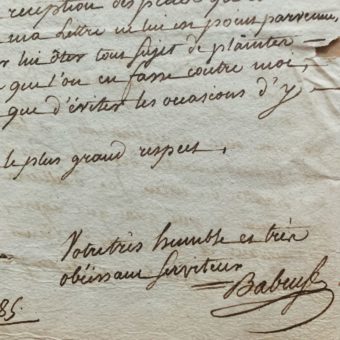 réception des
ma lettre ne lui est point parvenue,
lui ôter tous sujet de plainter
que l'on en fasse contre moi,
que d'éviter les occasions d'y
le plus grand respect,
Votre très humble et très
obéissant serviteur
Babeuf
85.